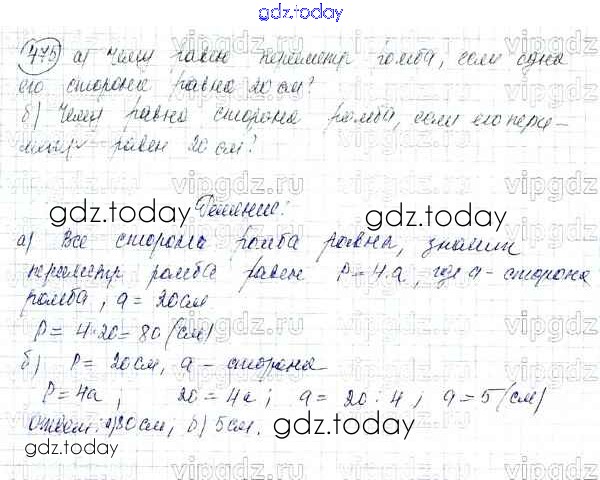 gdz.today
475 а) Чему равен периметр ромба, если одна
его сторона равна 20 см?
б) Чему равна сторона ромба, если его пери-
метр равен 20 см?
Решение:
а) Все стороны ромба равны, значит
периметр ромба равен P = 4·a, где a - сторона
ромба, a = 20см
P = 4·20 = 80 (см)
б) P = 20см, a - сторона
P = 4a; 20 = 4a; a = 20 : 4; a = 5 (см)
Ответ: а) 80см, б) 5см.
gdz.today
gdz.today
gdz.today
gdz.today
vipgdz.ru